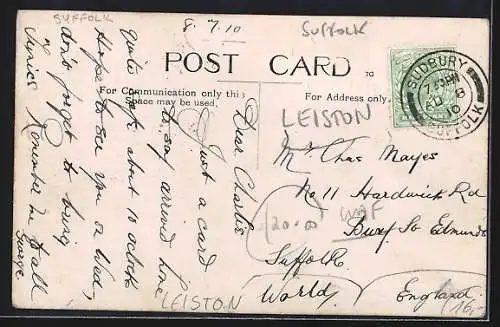 SUFFOLK
8.7.10
SUFFOLK
POST CARD
TO
For Communication only this
Space may be used.
For Address only.
LEISTON
SUDBURY
SUFFOLK
Dear Charlie
Just a card
to say arrived home
quite safe about 10 oclock
Hope to see you on Wed,
don't forget to bring
Lyrics
Remember me to all
George.
Mr Chas Mayes
No 11 Hardwick Rd
Bury So Edmunds
Suffolk
World
England
20.00
LEISTON
16,-